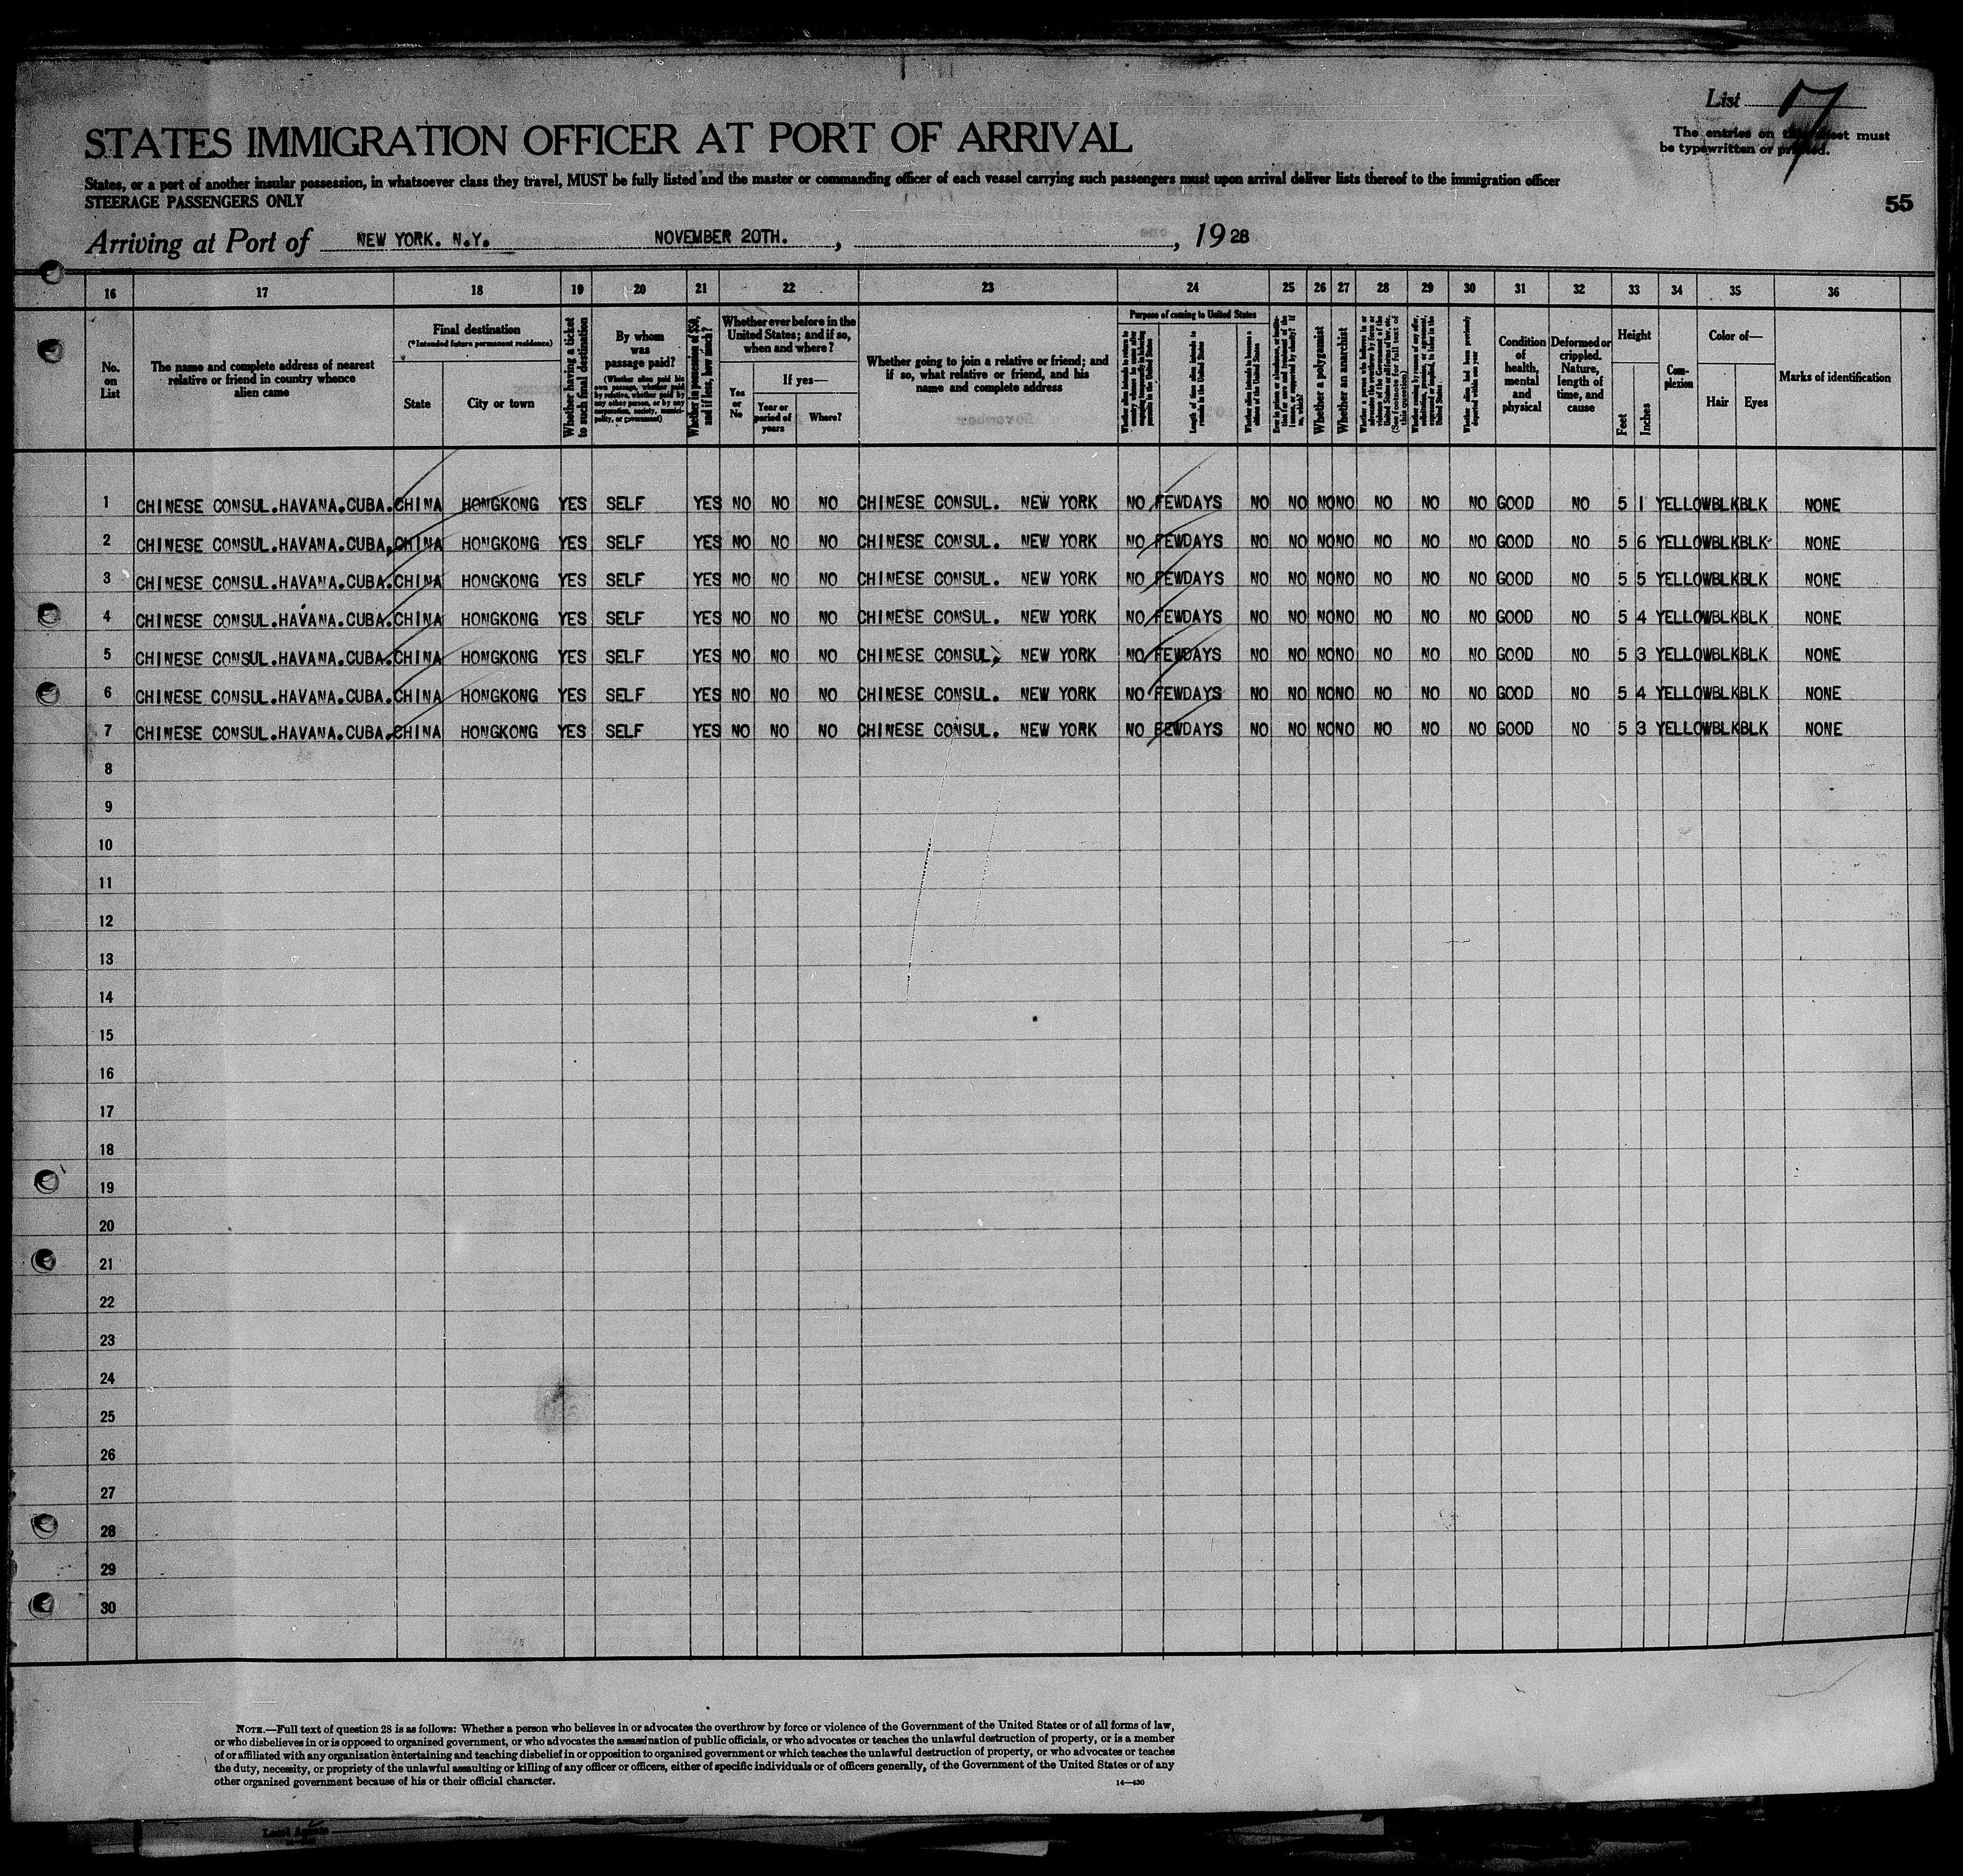 List 7
The entries on this sheet must
be typewritten or printed.
STATES IMMIGRATION OFFICER AT PORT OF ARRIVAL
States, or a port of another insular possession, in whatsoever class they travel, MUST be fully listed and the master or commanding officer of each vessel carrying such passengers must upon arrival deliver lists thereof to the immigration officer
STEERAGE PASSENGERS ONLY
55
Arriving at Port of NEW YORK. N.Y. NOVEMBER 20TH. , , 1928
16 17 18 19 20 21 22 23 24 25 26 27 28 29 30 31 32 33 34 35 36
No. on List
The name and complete address of nearest relative or friend in country whence alien came
Final destination
(*Intended future permanent residence)
State
City or town
Whether having a ticket to such final destination
By whom was passage paid?
(Whether alien paid his own passage, whether paid by relative, whether paid by any other person, or by any corporation, society, municipality, or government)
Whether in possession of $50, and if less, how much?
Whether ever before in the United States; and if so, when and where?
Yes or No
If yes—
Year or period of years
Where?
Whether going to join a relative or friend; and if so, what relative or friend, and his name and complete address
Purpose of coming to United States
Length of time alien intends to remain in the United States
Whether alien intends to become a citizen of the United States
Whether a polygamist
Whether an anarchist
Whether alien had been previously deported within one year
Condition of health, mental and physical
Deformed or crippled. Nature, length of time, and cause
Height
Feet
Inches
Complexion
Color of—
Hair
Eyes
Marks of identification
1 CHINESE CONSUL.HAVANA.CUBA. CHINA HONGKONG YES SELF YES NO NO NO CHINESE CONSUL. NEW YORK NO FEWDAYS NO NO NO NO NO NO NO GOOD NO 5 1 YELLOW BLK BLK NONE
2 CHINESE CONSUL.HAVANA.CUBA. CHINA HONGKONG YES SELF YES NO NO NO CHINESE CONSUL. NEW YORK NO FEWDAYS NO NO NO NO NO NO NO GOOD NO 5 6 YELLOW BLK BLK NONE
3 CHINESE CONSUL.HAVANA.CUBA. CHINA HONGKONG YES SELF YES NO NO NO CHINESE CONSUL. NEW YORK NO FEWDAYS NO NO NO NO NO NO NO GOOD NO 5 5 YELLOW BLK BLK NONE
4 CHINESE CONSUL.HAVANA.CUBA. CHINA HONGKONG YES SELF YES NO NO NO CHINESE CONSUL. NEW YORK NO FEWDAYS NO NO NO NO NO NO NO GOOD NO 5 4 YELLOW BLK BLK NONE
5 CHINESE CONSUL.HAVANA.CUBA. CHINA HONGKONG YES SELF YES NO NO NO CHINESE CONSUL. NEW YORK NO FEWDAYS NO NO NO NO NO NO NO GOOD NO 5 3 YELLOW BLK BLK NONE
6 CHINESE CONSUL.HAVANA.CUBA. CHINA HONGKONG YES SELF YES NO NO NO CHINESE CONSUL. NEW YORK NO FEWDAYS NO NO NO NO NO NO NO GOOD NO 5 4 YELLOW BLK BLK NONE
7 CHINESE CONSUL.HAVANA.CUBA. CHINA HONGKONG YES SELF YES NO NO NO CHINESE CONSUL. NEW YORK NO FEWDAYS NO NO NO NO NO NO NO GOOD NO 5 3 YELLOW BLK BLK NONE
8
9
10
11
12
13
14
15
16
17
18
19
20
21
22
23
24
25
26
27
28
29
30
NOTE.—Full text of question 28 is as follows: Whether a person who believes in or advocates the overthrow by force or violence of the Government of the United States or of all forms of law,
or who disbelieves in or is opposed to organized government, or who advocates the assassination of public officials, or who advocates or teaches the unlawful destruction of property, or is a member
of or affiliated with any organization entertaining and teaching disbelief in or opposition to organized government or which teaches the unlawful destruction of property, or who advocates or teaches
the duty, necessity, or propriety of the unlawful assaulting or killing of any officer or officers, either of specific individuals or of officers generally, of the Government of the United States or of any
other organized government because of his or their official character.
14—430